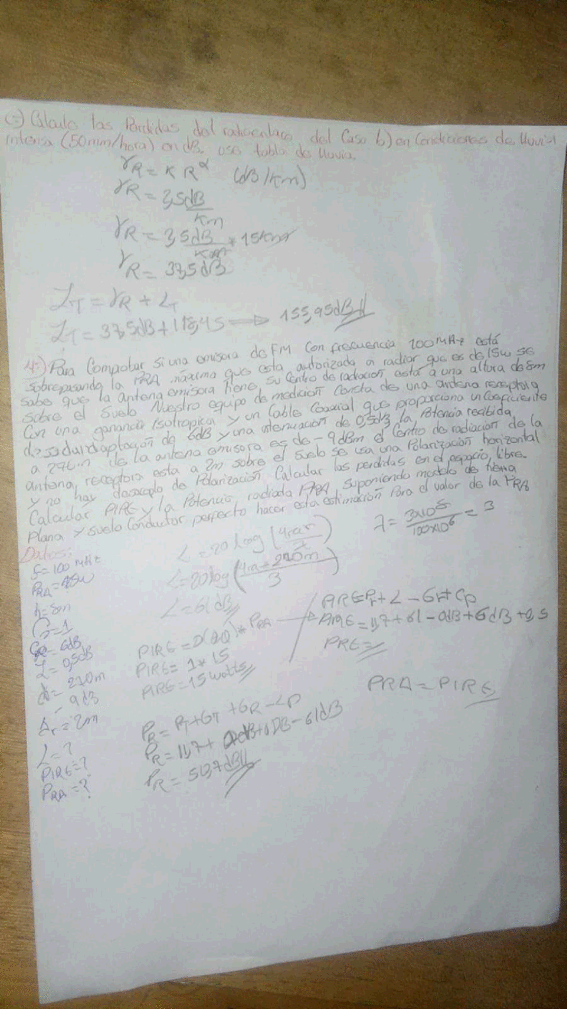 Calculo las Perdidas del radioenlace del Caso b) en Condiciones de lluvia
intensa (50mm/hora) en dB, use tabla de lluvia
γR = K R^α (dB/Km)
γR = 2,5 dB/Km
γR = 2,5 dB/Km * 15Km
γR = 37,5 dB
LT = γR + L
LT = 37,5dB + 118,45 → 155,95dB
4:) Para Comprobar si una emisora de FM Con frecuencia 100 MHz está
sobrepasando la PRA máxima que esta autorizada a radiar que es de 15w se
sabe que la antena emisora tiene su Centro de radiación está a una altura de 8m
sobre el suelo Nuestro equipo de medición Consta de una antena receptora
Con una ganancia isotropica y un Cable Coaxial que proporciona un Coeficiente
de desadaptación de 6dB y una atenuación de 0,5dB la Potencia recibida
a 210m de la antena emisora es de -9dBm el Centro de radiación de la
antena receptora esta a 2m sobre el suelo se usa una Polarización horizontal
y no hay desacoplo de Polarización Calcular las perdidas en el espacio libre.
Calcular PIRE y la Potencia radiada PRA suponiendo modelo de tierra
Plana y suelo Conductor perfecto hacer esta estimación Para el valor de la PRA
Datos:
f= 100 MHz
PRA= 15w
h= 8m
G=1
6dB
L= 0,5dB
d= 210m
9dB
= 2m
L=?
PIRE=?
PRA=?
L = 20 log (4πd/λ)
L = 20 log (4π * 210m/3)
L = 61 dB
λ = 3x10^8/100x10^6 = 3
PIRE = * PRA
PIRE = 1 * 15
PIRE = 15 watts
PR = PT + GT + GR - LP
PR = 11,7 + 0dB + 0dB - 61dB
PR = 50,7 dB
PIRE = Pr + L - Gr + Cp
PIRE = 11,7 + 61 - 0dB + 6dB + 0,5
PIRE =
PRA = PIRE